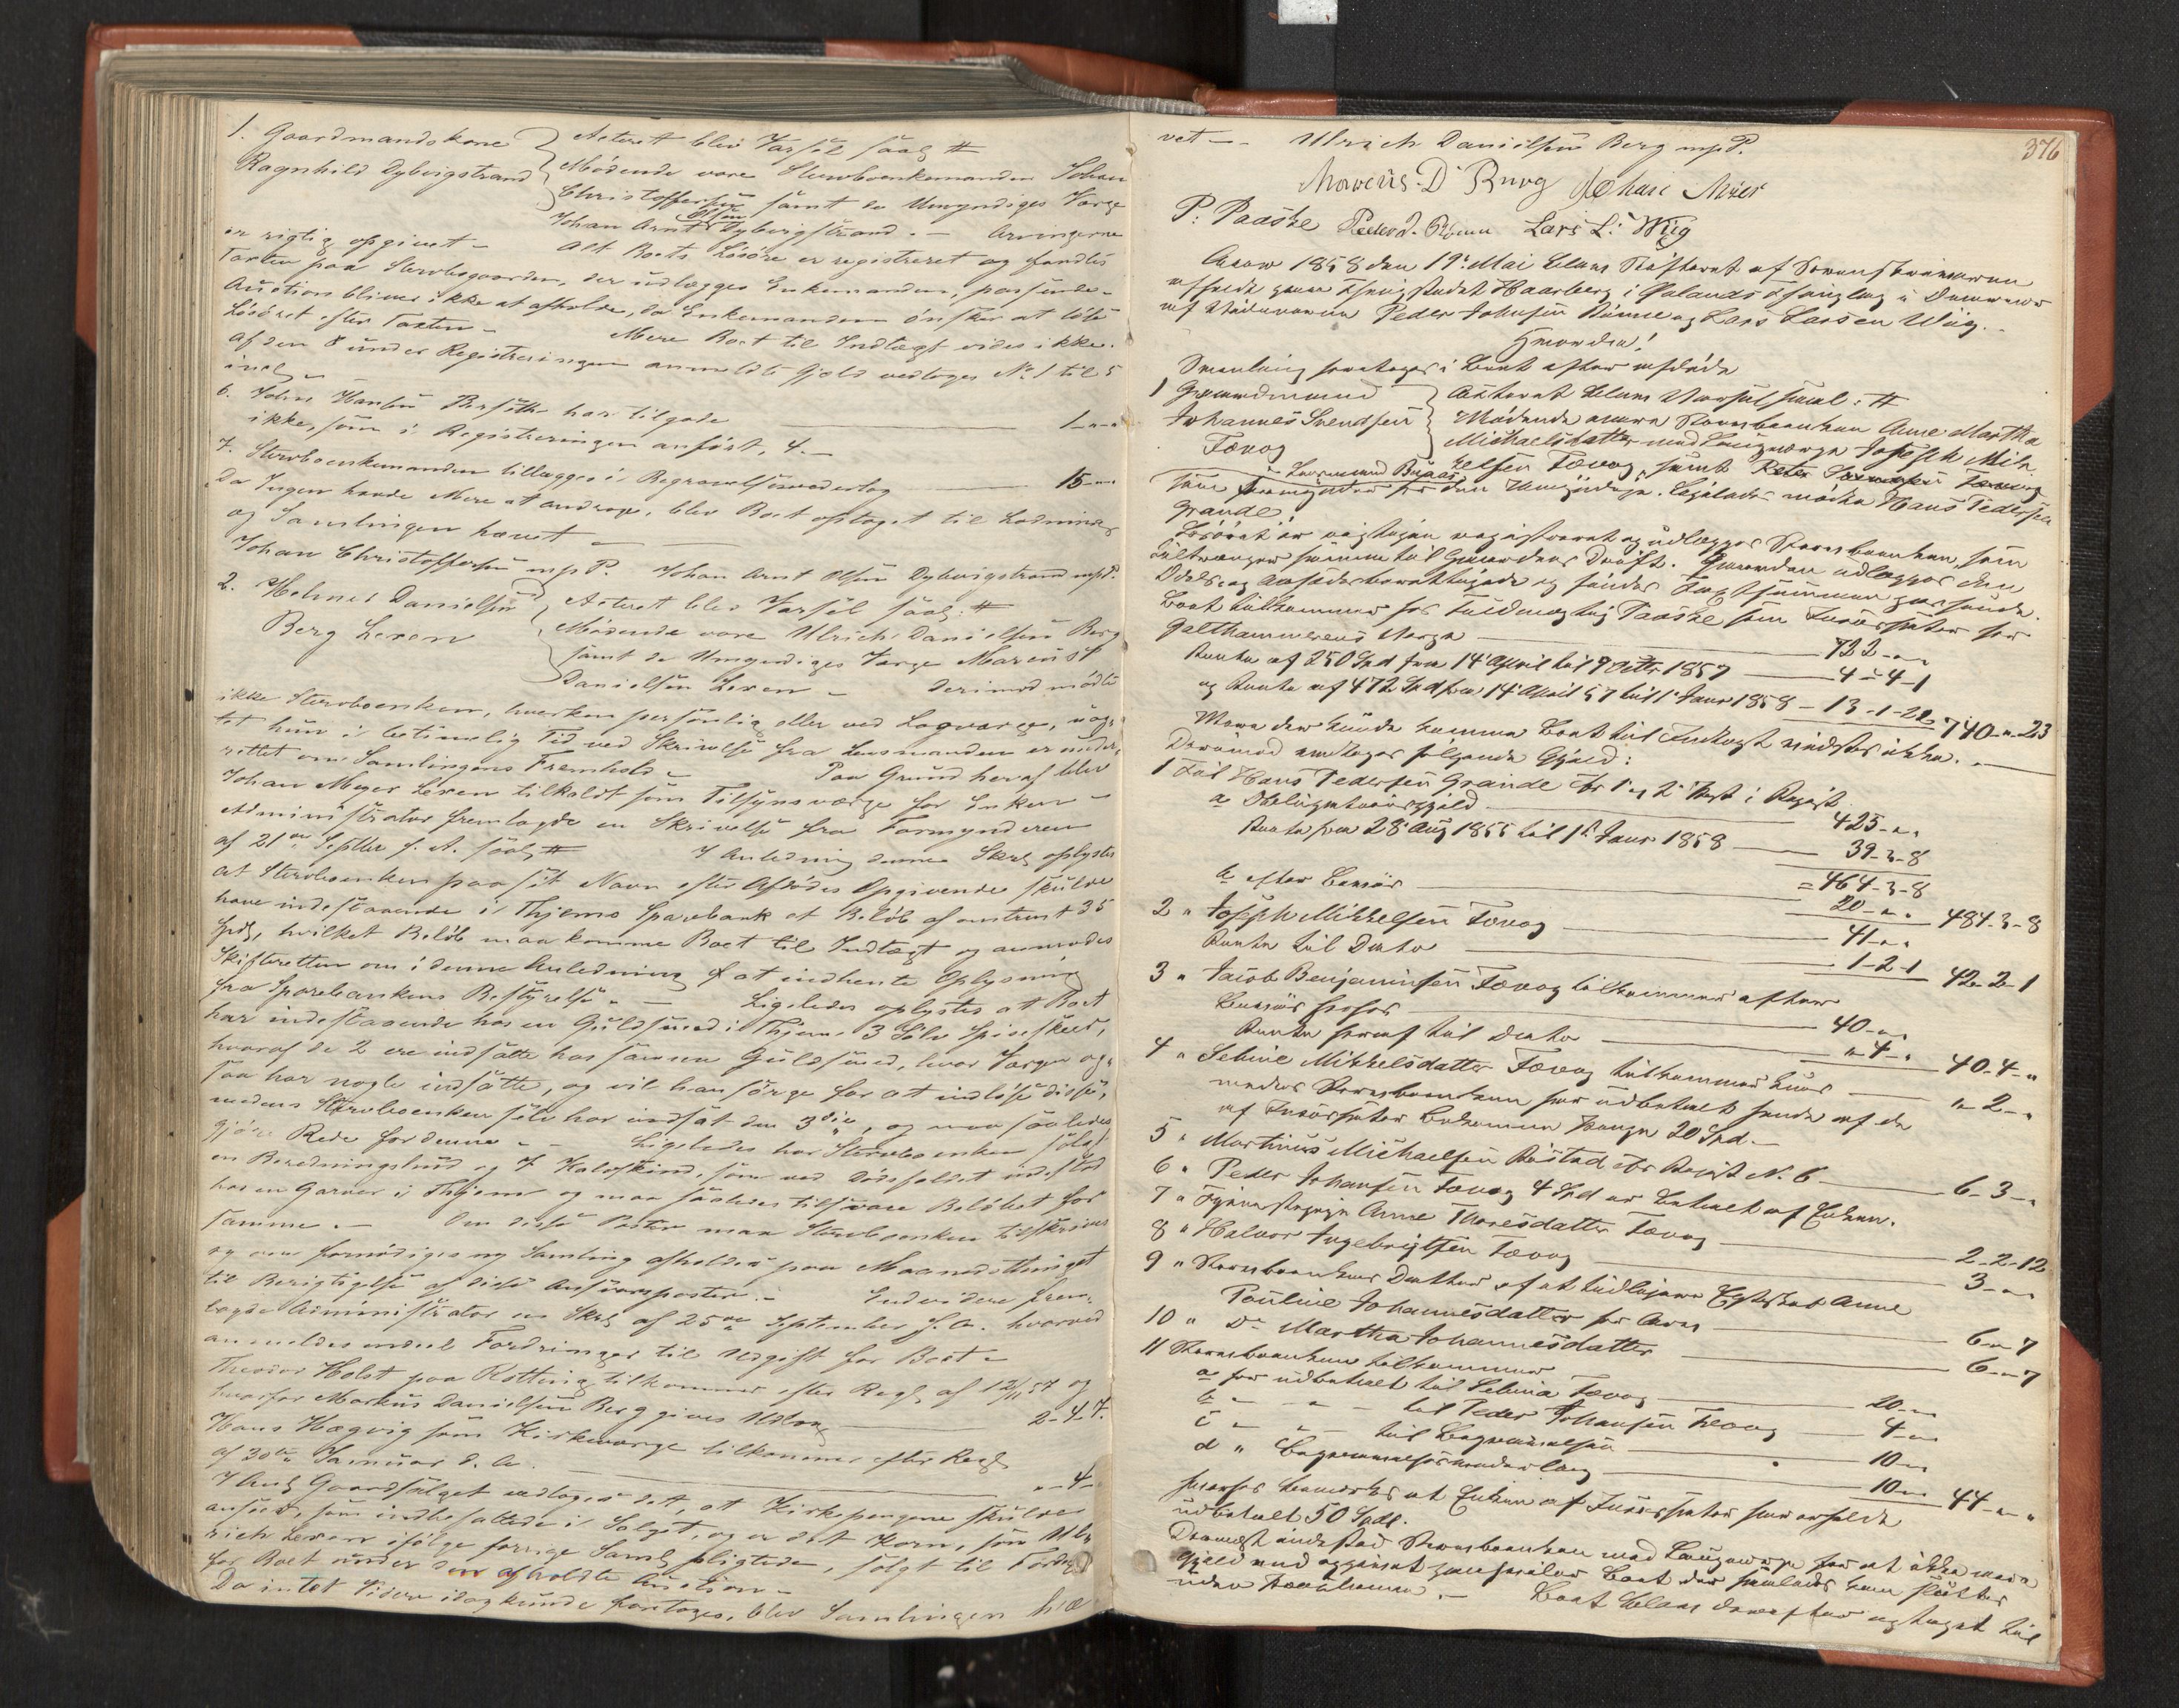 1. Gaardmandskone
Ragnhild Dybvigstrand
Acteret blev Varsel saal. #
Mødende vare Stervboenkemanden Johan
Christoffersen samt de Umyndiges Værge
Johan Arnt Olsen Dybvigstrand. — Arvingerne
er rigtig opgivet — Alt Boets Løsøre er registreret og fandtes
Taxten paa Stervbogaarden, der udlægges Enkemanden, passende —
Auction bliver ikke at afholde, da Enkemanden ønsker at løse
Løsøret efter Taxten — Mere Boet til Indtægt vides ikke.
Af den 8 under Registreringen anmeldte Gjæld vedtoges No 1 til 5
incl —
6. Johan Hansen har tilgode 1 " "
ikke, som i Registreringen anført, 4. —
7. Stervboenkemanden tillægges i Begravelsesvederlag 15 " "
Da Ingen havde Mere at andrage, blev Boet optaget til Lodning
og Samlingen hævet —
Johan Christoffersen mpP. Johan Arnt Olsen Dybvigstrand mpP.
2. Helmer Danielsen
Berg Lexen
Acteret blev Varsel saal. #
Mødende vare Ulrich Danielsen Berg
samt de Umyndiges Værge Marcus
Danielsen Lexen — Derimod mødte
ikke Stervboenken, hverken personlig eller ved Laugværge, uag-
tet hun i betimelig Tid ved Skrivelse fra Lensmanden er under-
rettet om Samlingens Fremhold — Paa Grund heraf blev
Johan Meyer Lexen tilkaldt som Tilsynsværge for Enken —
Administrator fremlagde en Skrivelse fra Formynderen
af 21de Septbr f. A. saal. # I Anledning denne Skr. oplystes
at Stervboenken paa sit Navn efter Afdødes Opgivende skulde
have indestaaende i Thjems Sparebank et Beløb af omtrent 35
Spd, hvilket Beløb maa komme Boet til Indtægt og anmodes
Skifteretten om i denne Anledning at indhente Oplysning
fra Sparebankens Bestyrelse — Ligeledes oplystes at Boet
har indestaaende hos en Guldsmed i Thjem 3 Sølv Spiseskeer,
hvoraf de 2 ere indsatte hos samme Guldsmed, hvor Værgen og-
saa har nogle indsatte, og vil han sørge for at indløse disse,
medens Stervboenken selv har indsat den 3die, og maa saaledes
gjøre Rede for denne — Ligeledes har Stervboenken solgt
en Beredningshud og 7 Kalveskind, som ved Dødsfaldet indestod
hos en Garver i Thjem og maa saaledes tilsvare Beløbet for
samme. — Om disse Poster maa Stervboenken tilskrives
og om fornødiges ny Samling afholdes paa Maanedsthinget
til Berigtigelse af disse Ansvarsposter. — Endvidere frem-
lagde Administrator en Skr. af 25de September f. A. hvorved
anmeldes endeel Fordringer til Udgift for Boet —
Theodor Holst paa Rotting tilkommer efter Regl. af 12/11 57 og
hvorfor Markus Danielsen Berg gives Udlæg 2-4-7.
Hans Hægvig som Kirkeværge tilkommer efter Regl.
af 30te Januar d. A. " 4 "
I Anl. Gaardsalget vedtoges det, at Kirkepengene skulde
ansees, som indbefattede i Salget, og er det Korn, som Ul-
rich Lexen ifølge forrige Saml. pligtede, solgt til Fordel
for Boet under den afholdte Auction —
Da intet Videre idag kunde foretages, blev Samlingen hæ
376
vet — Ulrich Danielsen Berg mpP.
Marcus D Berg Johan Meier
P. Paaske Peder J. Rønne Lars L. Wiig
Anno 1858 den 19. Mai blev Skifteret af Sorenskriveren
afholdt paa Thingstedet Haarberg i Ørlands Thinglag i Overvær
af Vidnerne Peder Johnsen Rønne og Lars Larsen Wiig. —
Hvorda!
Samling foretages i Boet efter afdøde
1 Gaardmand
Johannes Svendsen
Tevog
Acteret blev Varsel saal. #
Mødende vare Stervboenken Anne Martha
Michaelsdatter med Laugværge Joseph Mik-
kelsen Tevog, samt
som Formynder for den Umyndige. Ligeledes mødte Hans Pedersen
Grande.
Løsøret er vigtigen registreret og udlægges Stervboenken, som
tiltrænger samme til Gaardens Drift. Gaarden udlægges den
Odels- og Aasædesberettigede og fandtes Taxtsummen passende.
Boet tilkommer hos Fuldmægtig Paaske som Incassator for
Galthammerens Værge 722 " "
Rente af 250 Spd fra 14 April til 9 Octbr 1857 4-4-1
og Rente af 472 Spd fra 14 April 57 til 1 Janr 1858 13-1-22 740 " 23
Mere der kunde komme Boet til Indtægt vidstes ikke. —
Derimod vedtoges følgende Gjæld:
1 Til Hans Pedersen Grande for 1 og 2 Post i Regist.
a Obligationsgjæld 425 " "
Rente fra 28 Aug 1855 til 1 Janr 1858 39-3-8
= 464-3-8
b efter Beviis 20 " " 484-3-8
2 " Joseph Mikkelsen Tevog 41 " "
Rente til Dato 1-2-1 42-2-1
3 " Jacob Benjaminsen Tevog tilkommer efter
Beviis 40 " "
Rente heraf til Dato " 4 " 40-4 "
4 " Selivie Mikkelsdatter Tevog tilkommer kuns " 2 "
medens Stervboenken har udbetalt hende af de
af Incassator bekomne Penge 20 Spd. —
5 " Martinus Michaelsen Røstad for Regist N. 6 6-3 "
6 " Peder Johansen Tevog 4 Spd er betalt af Enken.
7 " Tjenestepige Anne Thoresdatter Tevog 2-2-12
8 " Halvor Ingebrigtsen Tevog 3 " "
9 " Stervboenkens Datter af et tidligere Ægteskab Anne
Pauline Johannesdatter for Arv 6 " 7
10 " Do Martha Johannesdatter 6 " 7
11 Stervboenken tilkommer
a for udbetalt til Selivia Tevog 20 " "
b " " til Peder Johansen Tevog 4 " "
c " " til Begravelsen 10 " "
d " Begravelsesvederlag 10 " " 44 " "
hvorfor bemærkes at Enken af Incassator har erholdt
udbetalt 50 Spd.
Dernæst indestod Stervboenken med Laugværge for at ikke mere
Gjæld end opgivet paahviler Boet der saaledes kan sluttes
uden Proclama. — Boet blev derefter optaget til